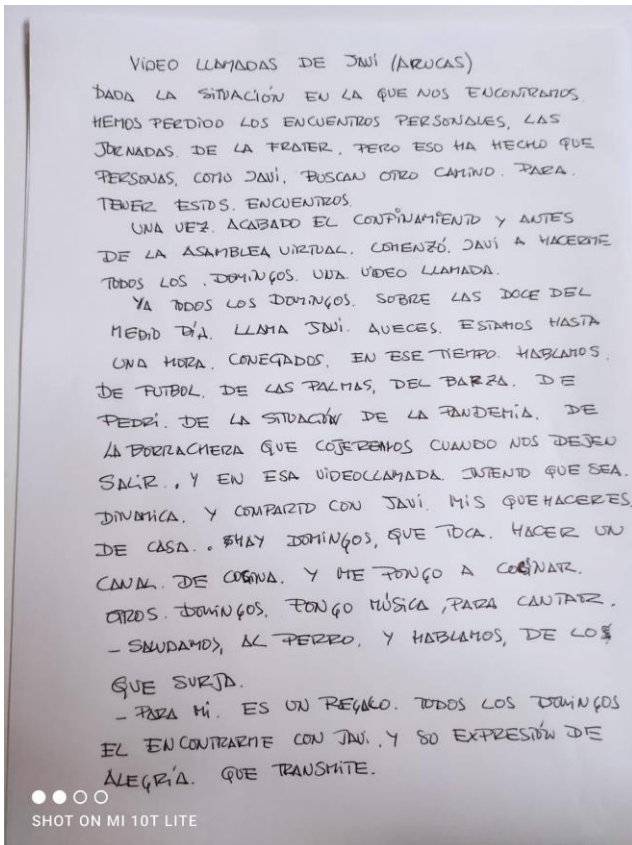 VIDEO LLAMADAS DE JAVI (ARUCAS)
DADA LA SITUACIÓN EN LA QUE NOS ENCONTRAMOS.
HEMOS PERDIDO LOS ENCUENTROS PERSONALES, LAS
JORNADAS. DE LA FRATER. PERO ESO HA HECHO QUE
PERSONAS, COMO JAVI, BUSCAN OTRO CAMINO. PARA.
TENER ESTOS. ENCUENTROS.
UNA VEZ. ACABADO EL CONFINAMIENTO Y ANTES
DE LA ASAMBLEA VIRTUAL. COMENZÓ. JAVI A HACERME
TODOS LOS. DOMINGOS. UNA. VIDEO LLAMADA.
YA TODOS LOS DOMINGOS. SOBRE LAS DOCE DEL
MEDIO DÍA. LLAMA JAVI. AVECES. ESTAMOS HASTA
UNA HORA. CONEGADOS. EN ESE TIEMPO. HABLAMOS.
DE FUTBOL. DE LAS PALMAS, DEL BARZA. DE
PEDRI. DE LA SITUACIÓN DE LA PANDEMIA. DE
LA BORRACHERA QUE COJEREMOS CUANDO NOS DEJEN
SALIR., Y EN ESA VIDEOLLAMADA. INTENTO QUE SEA.
DINAMICA. Y COMPARTO CON JAVI. MIS QUEHACERES.
DE CASA.. HAY DOMINGOS, QUE TOCA. HACER UN
CANAL. DE COCINA. Y ME PONGO A COCINAR.
OTROS. DOMINGOS. PONGO MÚSICA, PARA CANTAR.
- SALUDAMOS, AL PERRO. Y HABLAMOS, DE LO
QUE SURJA.
- PARA MI. ES UN REGALO. TODOS LOS DOMINGOS
EL ENCONTRARME CON JAVI. Y SO EXPRESIÓN DE
ALEGRÍA. QUE TRANSMITE.
SHOT ON MI 10T LITE